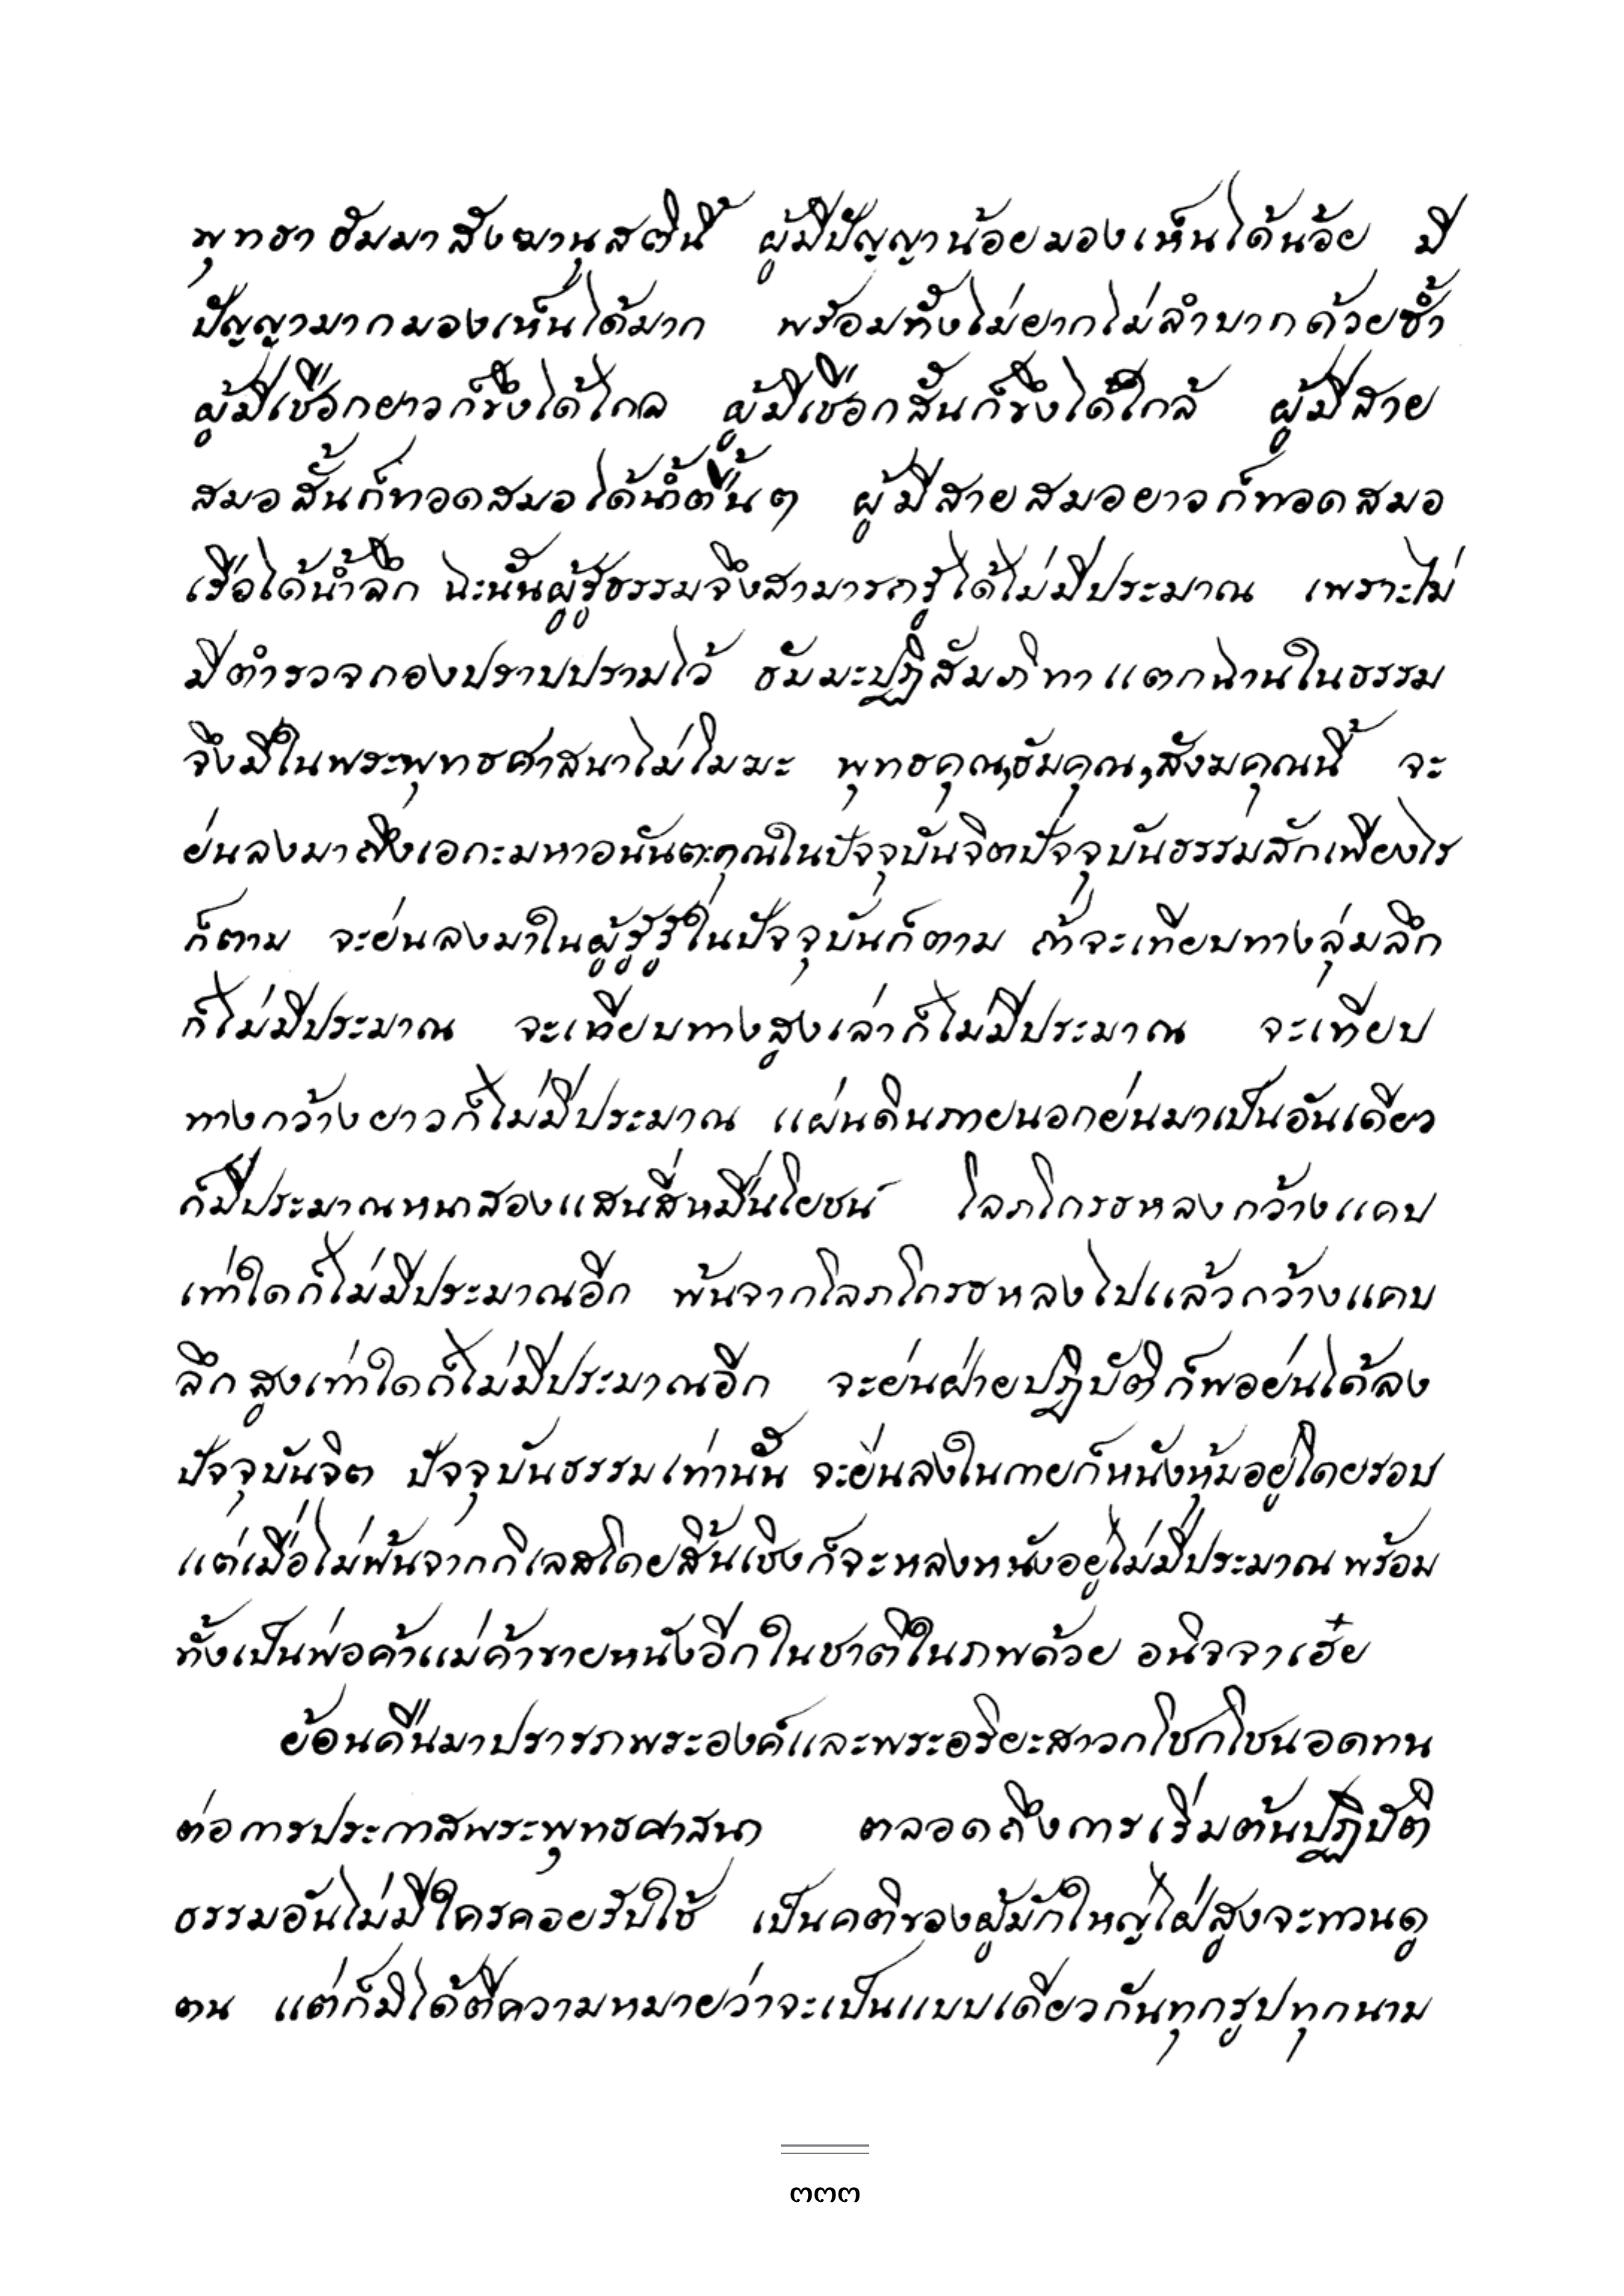 พุทธา ธัมมา สังฆานุสตินี้ ผู้มีปัญญาน้อยมองเห็นได้น้อย มี
ปัญญามากมองเห็นได้มาก พร้อมทั้งไม่ยากไม่ลำบากด้วยซ้ำ
ผู้มีเชือกยาวก็ขึงได้ไกล ผู้มีเชือกสั้นก็ขึงได้ใกล้ ผู้มีสาย
สมอสั้นก็ทอดสมอได้น้ำตื้นๆ ผู้มีสายสมอยาวก็ทอดสมอ
เรือได้น้ำลึก ฉะนั้นผู้รู้ธรรมจึงสามารถรู้ได้ไม่มีประมาณ เพราะไม่
มีตำรวจกองปราบปรามไว้ ธัมมะปฏิสัมภิทาแตกฉานในธรรม
จึงมีในพระพุทธศาสนาไม่โมฆะ พุทธคุณ,ธัมคุณ,สังฆคุณนี้ จะ
ย่นลงมาถึงเอกะมหาอนันตะคุณในปัจจุบันจิตปัจจุบันธรรมสักเพียงไร
ก็ตาม จะย่นลงมาในผู้รู้รู้ในปัจจุบันก็ตาม ถ้าจะเทียบทางลุ่มลึก
ก็ไม่มีประมาณ จะเทียบทางสูงเล่าก็ไม่มีประมาณ จะเทียบ
ทางกว้างยาวก็ไม่มีประมาณ แผ่นดินภายนอกย่นมาเป็นอันเดียว
ก็มีประมาณหนาสองแสนสี่หมื่นโยชน์ โลภโกรธหลงกว้างแคบ
เท่าใดก็ไม่มีประมาณอีก พ้นจากโลภโกรธหลงไปแล้วกว้างแคบ
ลึกสูงเท่าใดก็ไม่มีประมาณอีก จะย่นฝ่ายปฏิบัติก็พอย่นได้ลง
ปัจจุบันจิต ปัจจุบันธรรมเท่านั้น จะย่นลงในกายก็หนังหุ้มอยู่โดยรอบ
แต่เมื่อไม่พ้นจากกิเลสโดยสิ้นเชิงก็จะหลงหนังอยู่ไม่มีประมาณ พร้อม
ทั้งเป็นพ่อค้าแม่ค้าขายหนังอีกในชาติในภพด้วย อนิจจาเอ๋ย
ย้อนคืนมาปรารภพระองค์และพระอริยะสาวกโชกโชนอดทน
ต่อการประกาสพระพุทธศาสนา ตลอดถึงการเริ่มต้นปฏิบัติ
ธรรมอันไม่มีใครคอยรับใช้ เป็นคติของผู้มักใหญ่ใฝ่สูงจะทวนดู
ตน แต่ก็มิได้ตีความหมายว่าจะเป็นแบบเดียวกันทุกรูปทุกนาม
๓๓๓